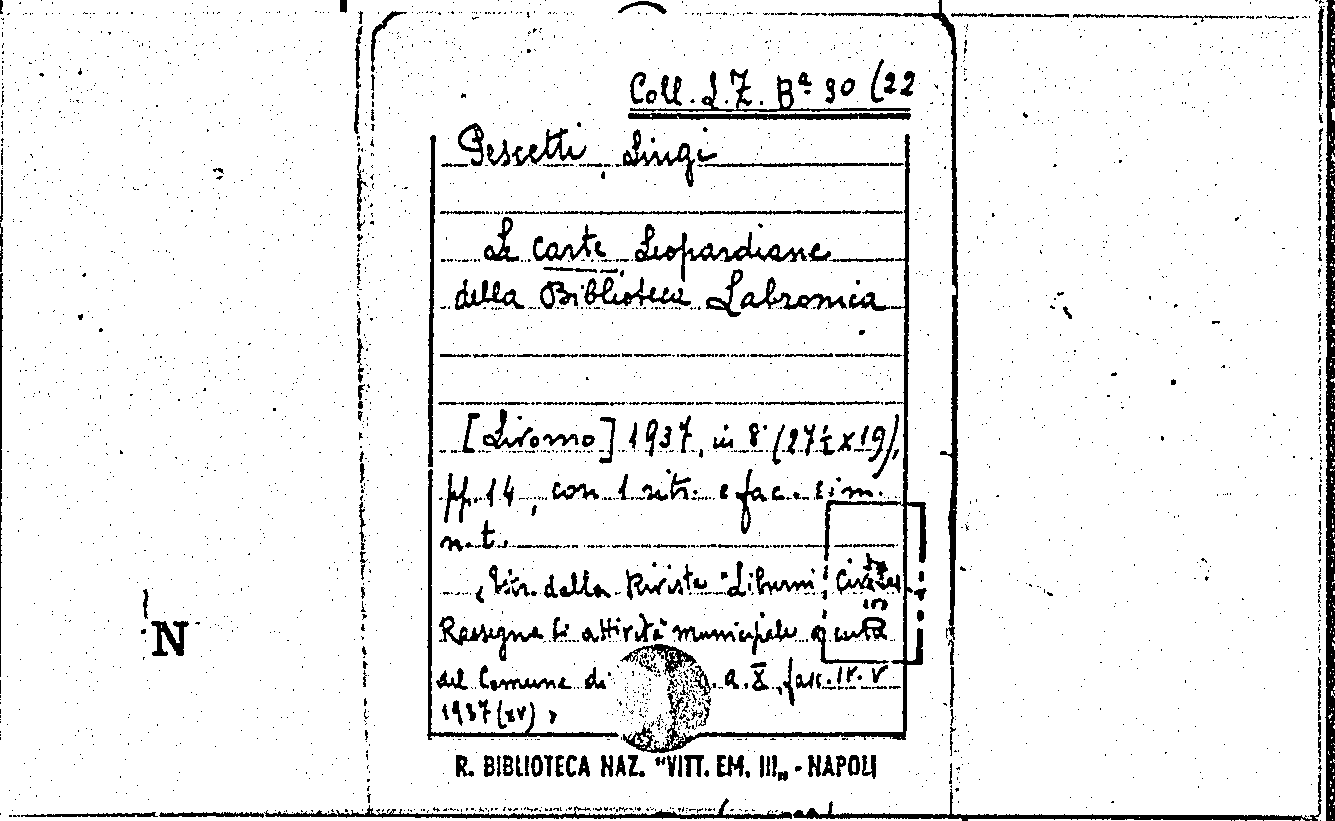 Coll. L. Z. Bª 30 (22
Pescetti, Luigi
Le carte Leopardiane
della Biblioteca Labronica
[Livorno] 1937, in 8° (27½ x 19),
pp. 14, con 1 ritr. e fac. sim.
n. t.
(Estr. dalla Rivista "Liburni Civitas
Rassegna di attività municipale a cura
del Comune di a. X, fasc. IV. V
1937 (XV) )
N
R. BIBLIOTECA NAZ. "VITT. EM. III„ - NAPOLI